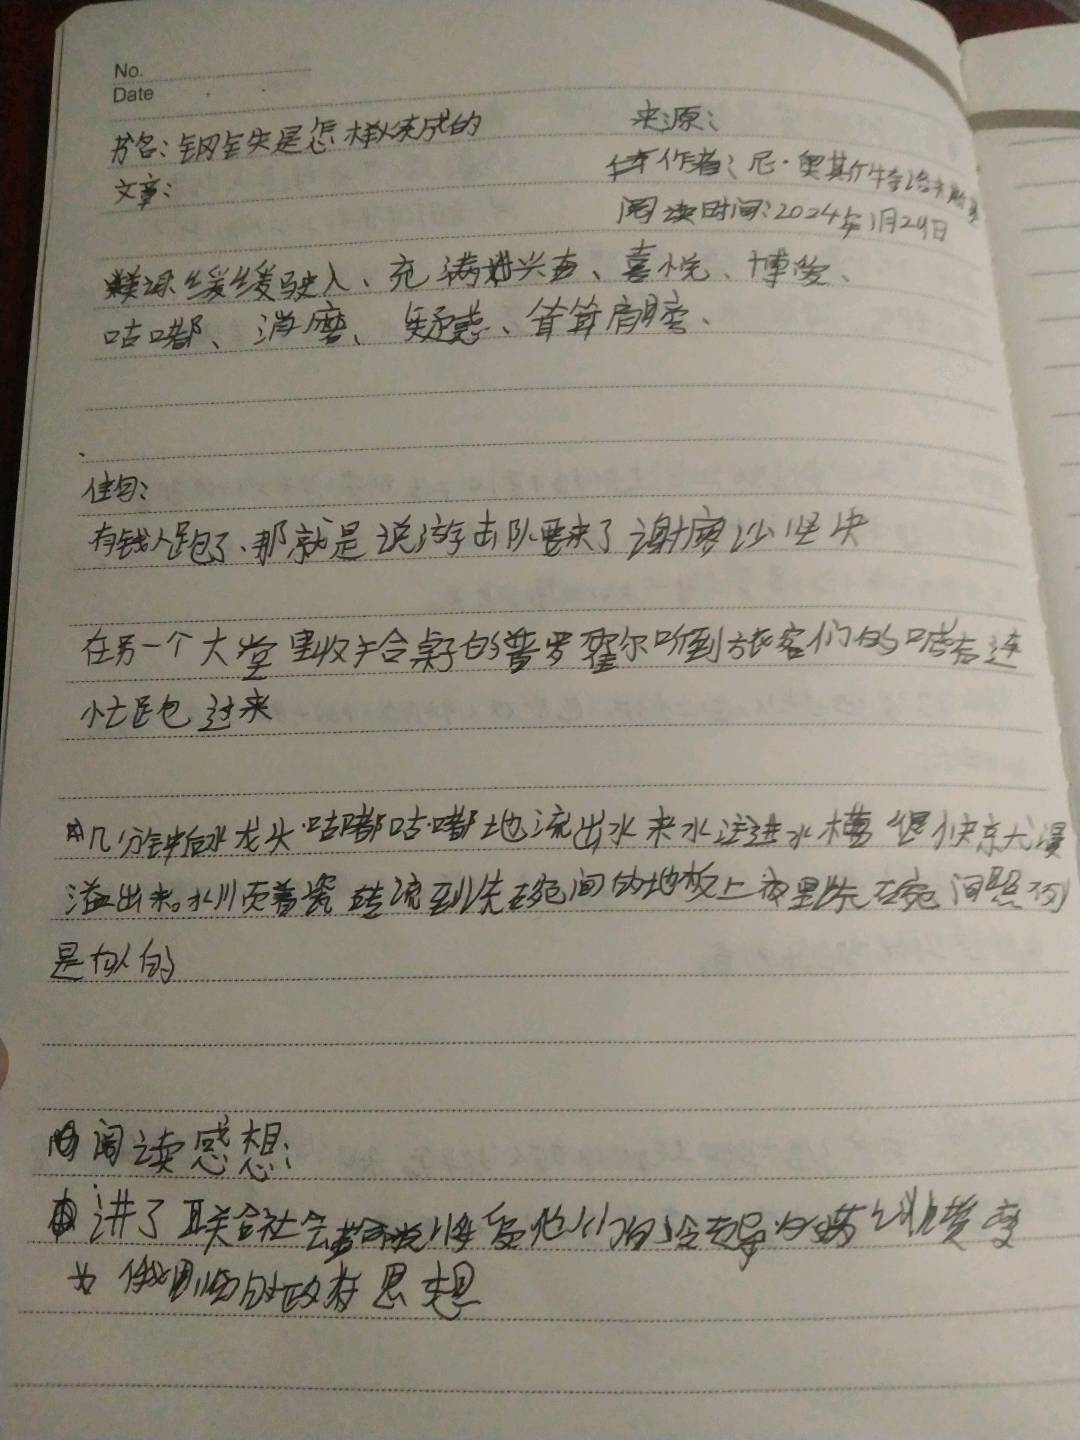 No.
Date
书名：钢铁是怎样炼成的
来源：
文章：
作者：尼·奥斯特洛夫斯基
阅读时间：2024年1月29日
缓缓驶入、充满着兴奋、喜悦、博爱、
咕嘟、消磨、疑惑、耸耸肩膀、
佳句：
有钱人跑了、那就是说游击队要来了谢廖沙坚决
在另一个大堂里收拾桌子的普罗霍尔听到旅客们的喊声连
忙跑过来
几分钟后水龙头咕嘟咕嘟地流出水来水注进水槽很快就漫
溢出来。水顺着瓷砖流到洗碗间的地板上夜里洗碗间照例
是有人的
阅读感想：
讲了联合社会
为俄临时政府思想